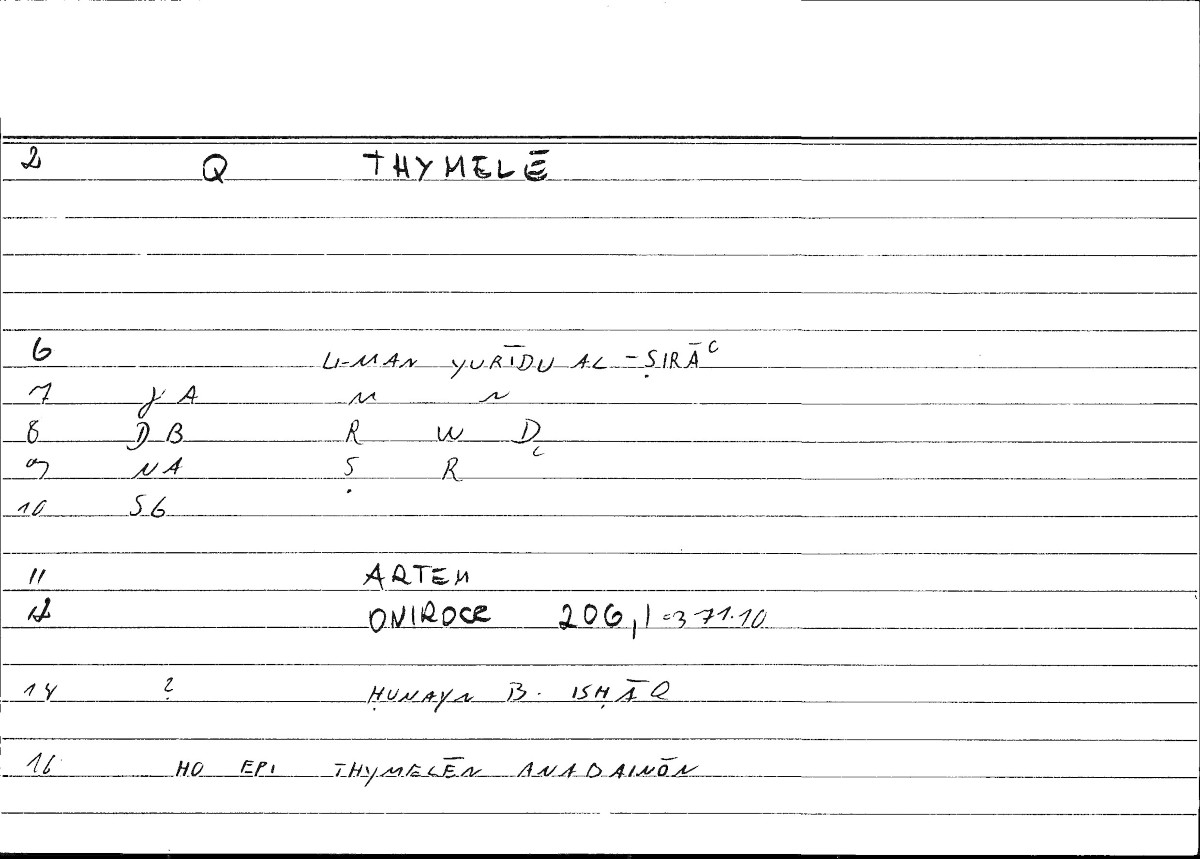 2 Q THYMELĒ
6 LI-MAN YURĪDU AL-ṢIRĀʿ
7 JA M N
8 DB R W D
9 NA Ṣ R
10 SG
11 ARTEM
12 ONIROCR 206,1 = 371.10
14 ? ḤUNAYN B. ISḤĀQ
16 HO EPI THYMELĒN ANABAINŌN